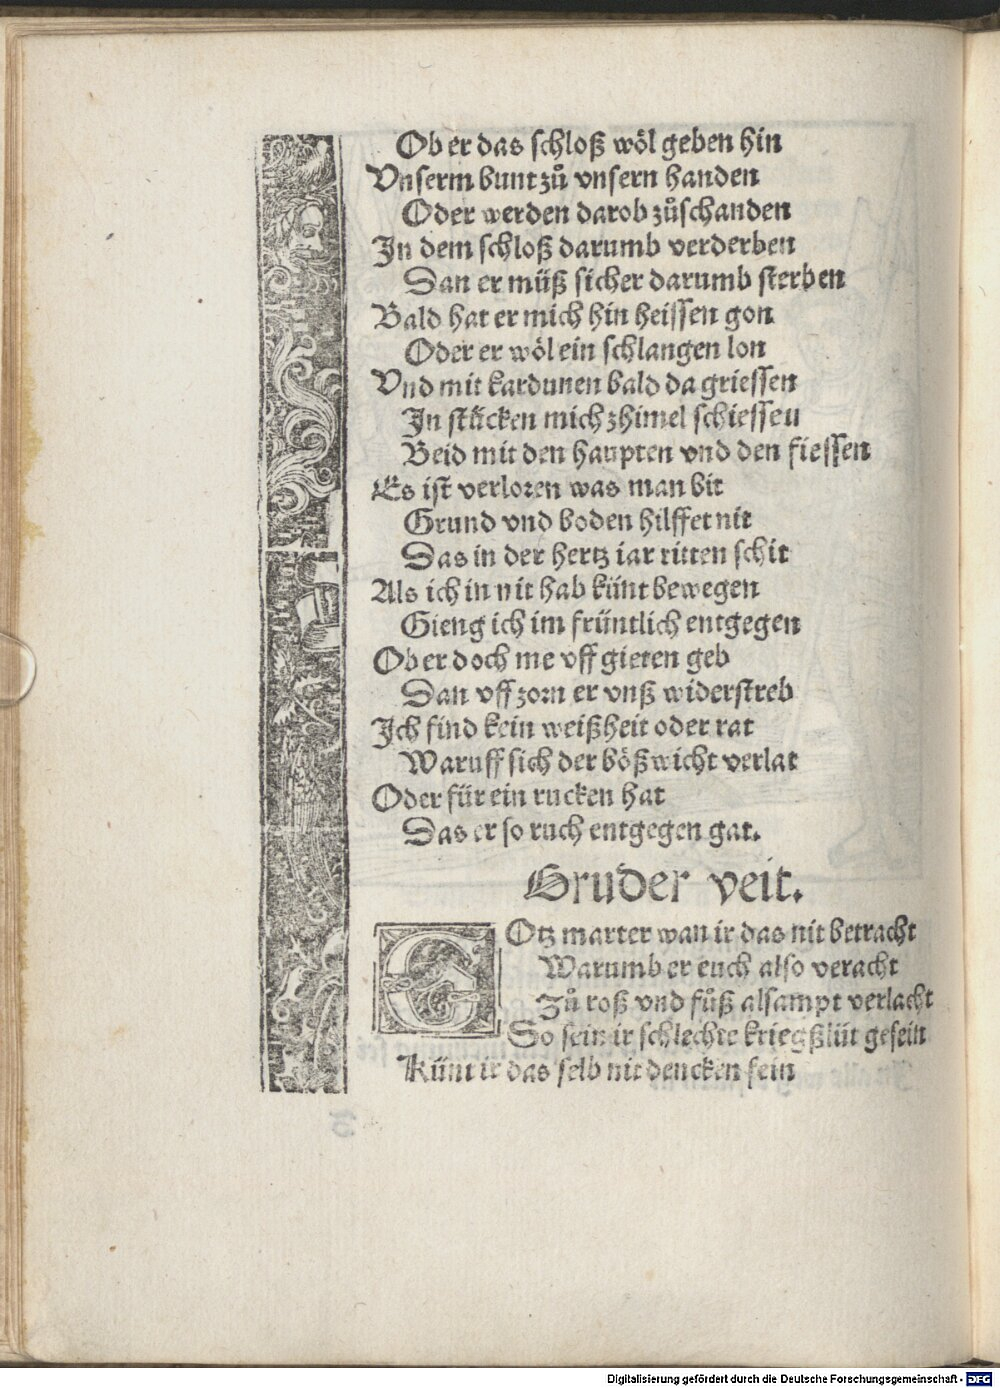 Ob er das schloß wöl geben hin
Vnserm bunt zů vnsern handen
Oder werden darob zůschanden
In dem schloß darumb verderben
Dan er müß sicher darumb sterben
Bald hat er mich hin heissen gon
Oder er wöl ein schlangen lon
Vnd mit kardunen bald da griessen
In stücken mich zhimel schiessen
Beid mit den haupten vnd den fiessen
Es ist verloren was man bit
Grund vnd boden hilffet nit
Das in der hertz iar ritten schit
Als ich in nit hab künt bewegen
Gieng ich im früntlich entgegen
Ob er doch me vff gieten geb
Dan vff zorn er vnß widerstreb
Ich find kein weißheit oder rat
Waruff sich der bößwicht verlat
Oder für ein rucken hat
Das er so ruch entgegen gat.
Bruder veit.
GOtz marter wan ir das nit betracht
Warumb er euch also veracht
Zů roß vnd fůß alsampt verlacht
So sein ir schlechte kriegßlüt gesein
Künt ir das selb nit dencken fein
Digitalisierung gefördert durch die Deutsche Forschungsgemeinschaft - DFG